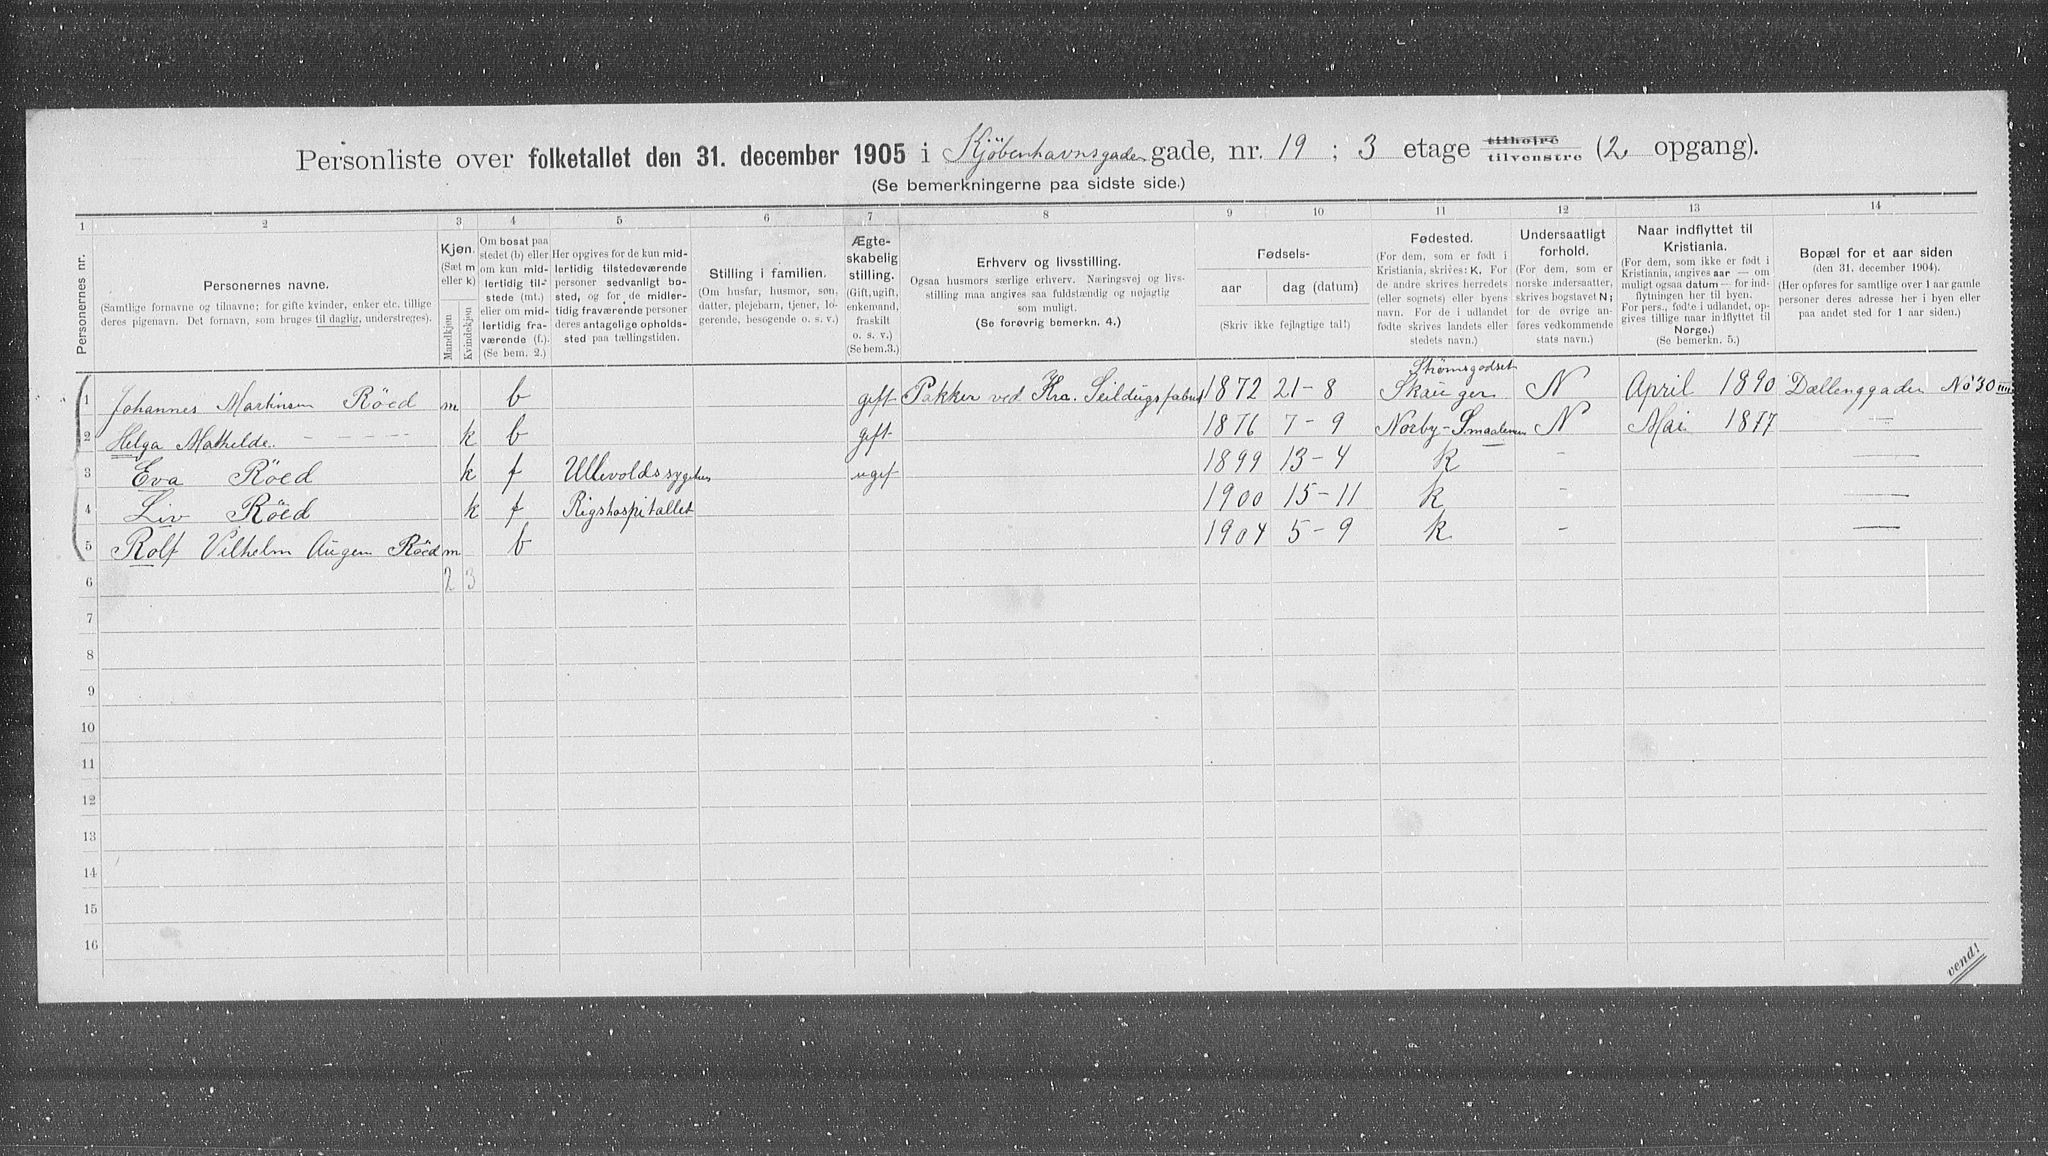 Personliste over folketallet den 31. december 1905 i Kjøbenhavnsgaden gade, nr. 19 ; 3 etage tilhøjre tilvenstre (2 opgang).
(Se bemerkningerne paa sidste side.)
1 2 3 4 5 6 7 8 9 10 11 12 13 14
Personernes nr.
Personernes navne.
(Samtlige fornavne og tilnavne; for gifte kvinder, enker etc. tillige
deres pigenavn. Det fornavn, som bruges til daglig, understreges).
Kjøn.
(Sæt m
eller k)
Mandkjøn
Kvindekjøn
Om bosat paa
stedet (b) eller
om kun mid-
lertidig til-
stede (mt.)
eller om mid-
lertidig fra-
værende (f.).
(Se bem. 2.)
Her opgives for de kun mid-
lertidig tilstedeværende
personer sedvanligt bo-
sted, og for de midler-
tidig fraværende personer
deres antagelige opholds-
sted paa tællingstiden.
Stilling i familien.
(Om husfar, husmor, søn,
datter, plejebarn, tjener, lo-
gerende, besøgende o. s. v.)
Ægte-
skabelig
stilling.
(Gift, ugift,
enkemand,
fraskilt
o. s. v.)
(Se bem.3.)
Erhverv og livsstilling.
Ogsaa husmors særlige erhverv. Næringsvej og livs-
stilling maa angives saa fuldstændig og nøjagtig
som muligt.
(Se forøvrig bemerkn. 4.)
Fødsels-
aar dag (datum)
(Skriv ikke fejlagtige tal!)
Fødested.
(For dem, som er født i
Kristiania, skrives: K. For
de andre skrives herredets
(eller sognets) eller byens
navn. For de i udlandet
fødte skrives landets eller
stedets navn.)
Undersaatligt
forhold.
(For dem, som er
norske undersaatter,
skrives bogstavet N;
for de øvrige an-
føres vedkommende
stats navn.)
Naar indflyttet til
Kristiania.
(For dem, som ikke er født i
Kristiania, angives aar — om
muligt ogsaa datum — for ind-
flytningen her til byen.
For pers., fødte i udlandet, op-
gives tillige naar indflyttet til
Norge.)
(Se bemerkn. 5.)
Bopæl for et aar siden
(den 31. december 1904).
(Her opføres for samtlige over 1 aar gamle
personer deres adresse her i byen eller
paa andet sted for 1 aar siden.)
Strømsgodset
1 Johannes Martinsen Röed m b gift Pakker ved Kra. Seildugsfabrik 1872 21-8 Skauger N April 1890 Dællenggaden No 30 III
2 Helga Mathilde. - - - - - k b gift 1876 7-9 Norby-Smaalenen N Mai 1877 —
3 Eva Röed k f Ullevoldssygehus ugif 1899 13-4 K - —
4 Liv Röed k f Rigshospitallet 1900 15-11 K - —
5 Rolf Vilhelm Augen Röed m b 1904 5-9 K - —
6 2 3
7
8
9
10
11
12
13
14
15
16
vend!